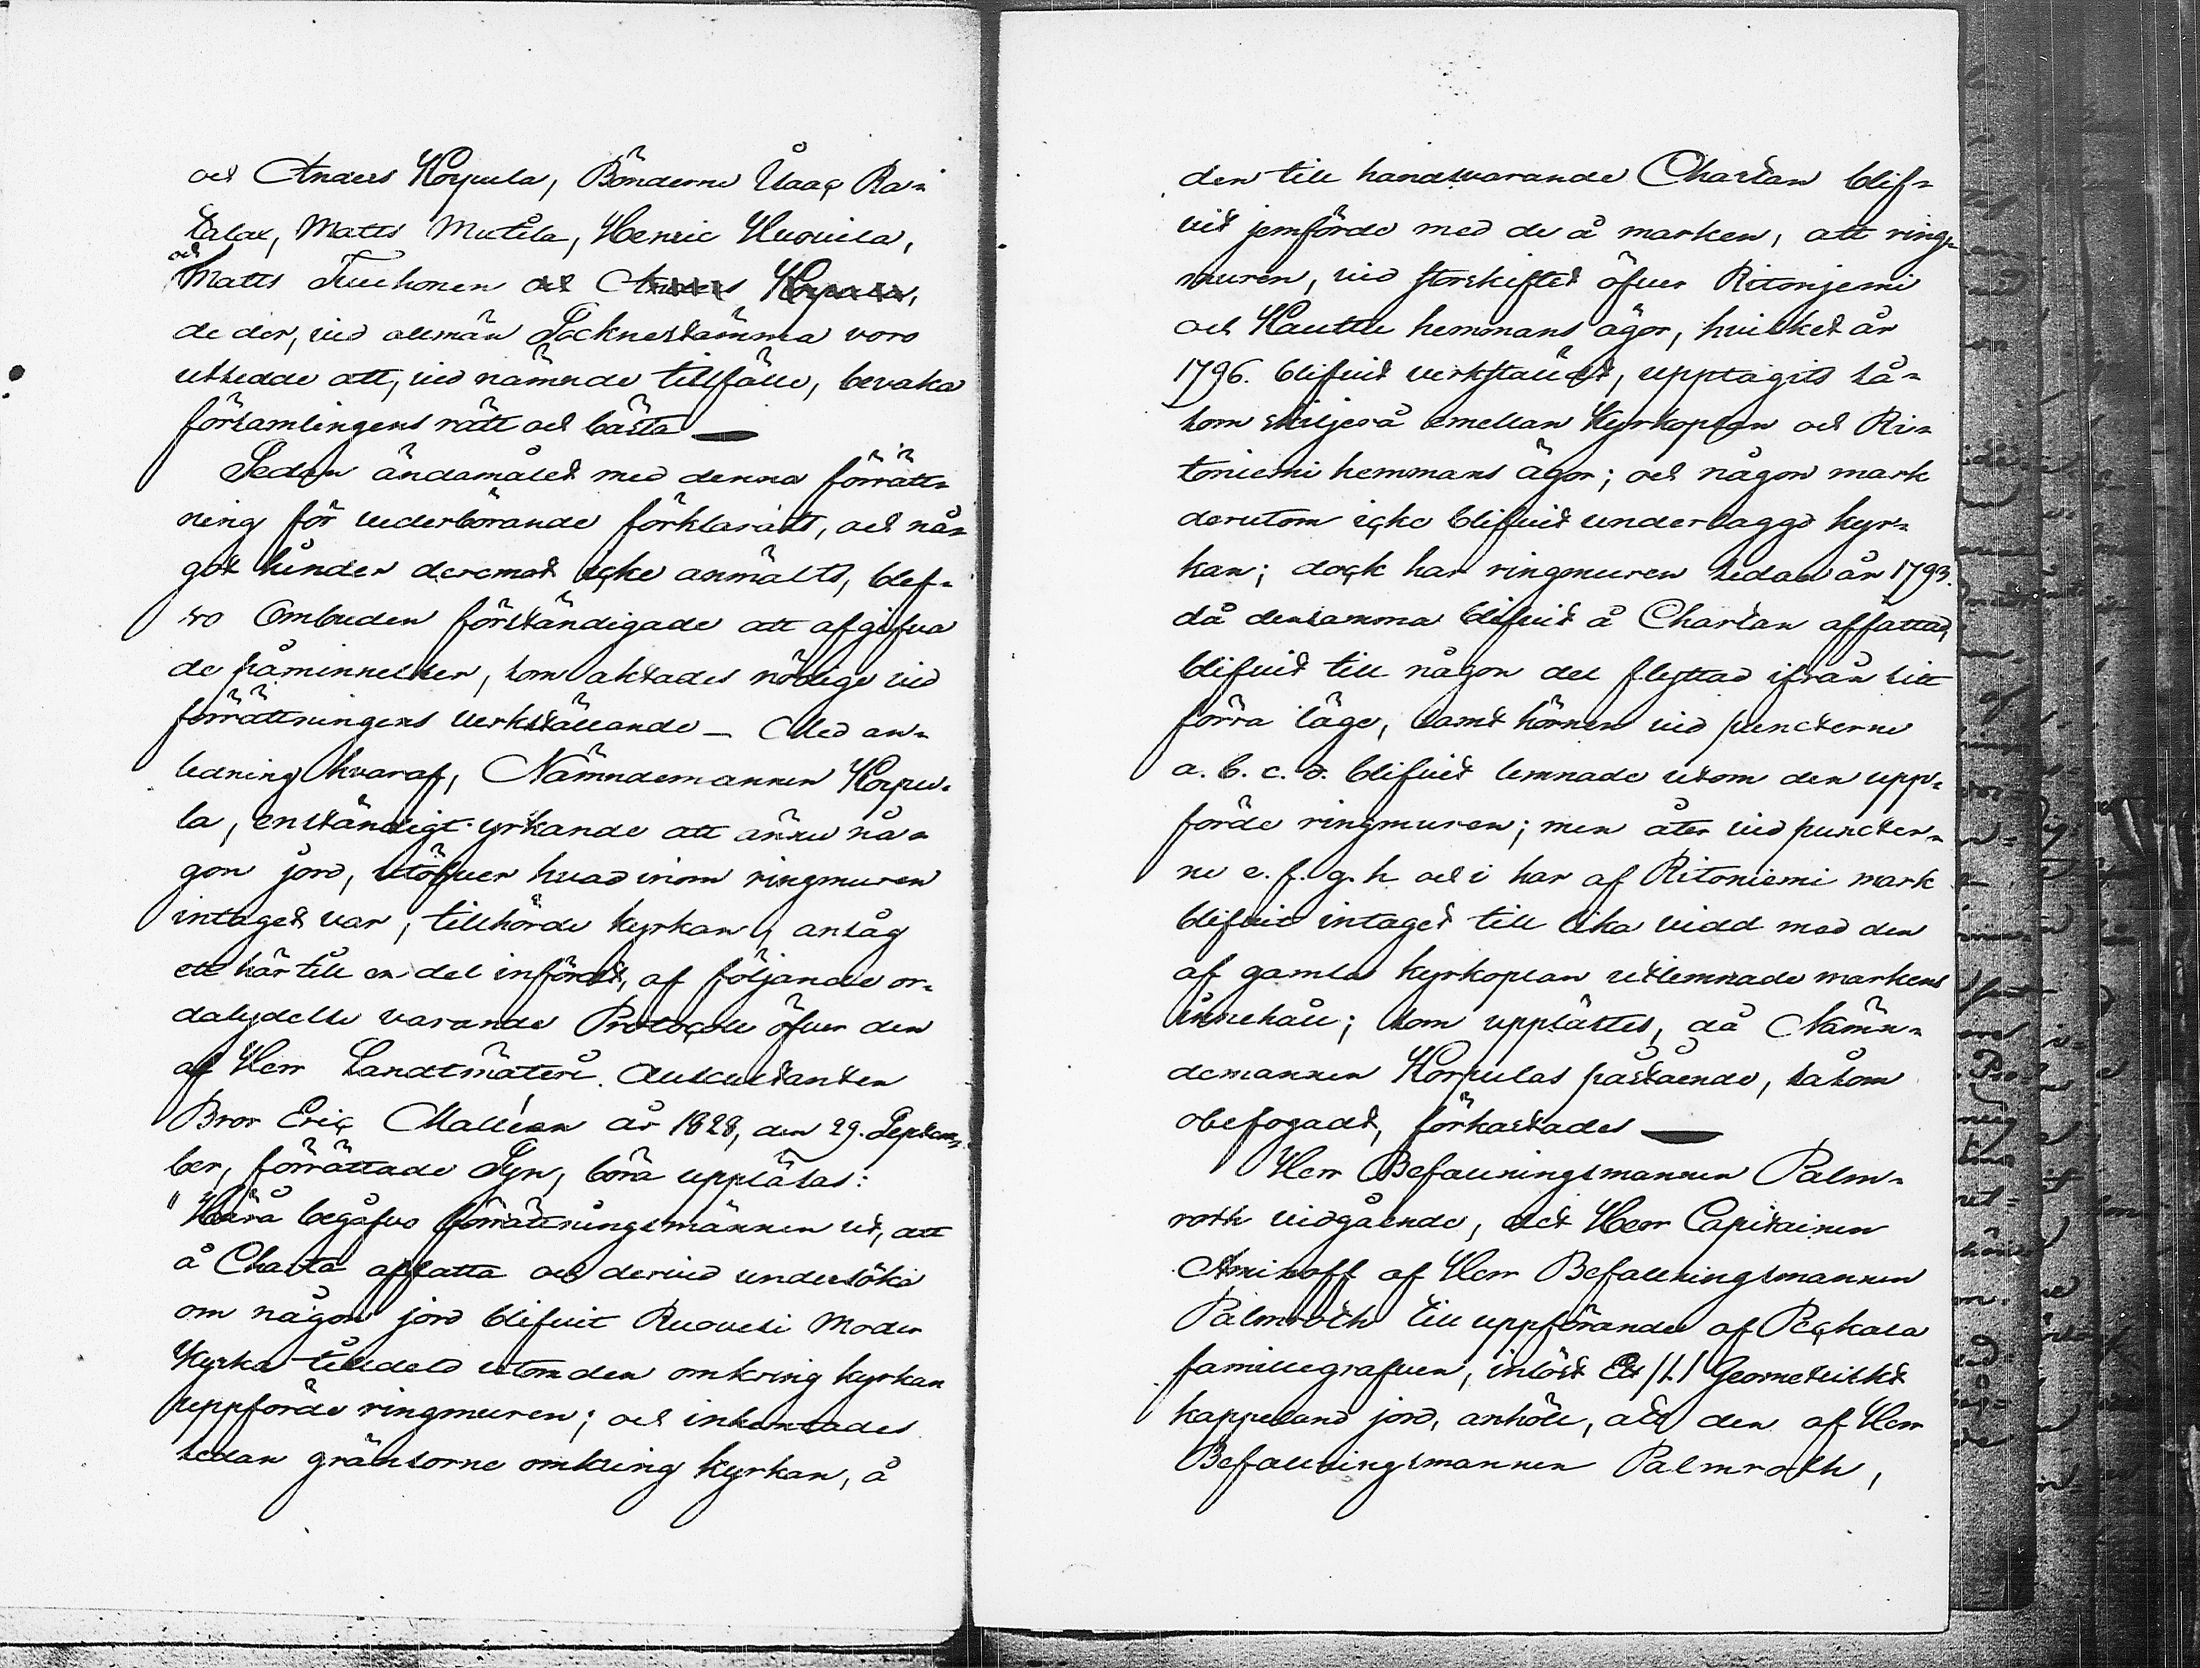 och Anders Korpula, Bönderne Isaac Ra-
talax, Matts Mutila, Henric Huovila,
och
Matts Tuuhonen och Anders Korpula,
de der, vid allmän Socknestämma voro
utsedde att, vid nämnde tillfälle, bevaka
församlingens rätt och bästa —
Sedan ändamålet med denna förrätt-
ning för vederbörande förklarats, och nå-
got hinder deremot icke anmälts, blef-
vo Ombuden förständigade att afgifva
de påminnelser, som aktades nödige vid
förrättningens verkställande — Med an-
ledning hvaraf, Nämndemannen Korpu-
la, enständigt yrkande att ännu nå-
gon jord, utöfver hvad inom ringmuren
intaget var, tillhörde kyrkan, ansåg
ett här till en del infördt, af följande or-
dalydelse varande Protocoll öfver den
af Herr Landtmäteri Auscultanten
Bror Eric Malleén år 1828, den 29. Septem-
ber, förrättade Syn, böra uppläsas:
"Härå begåfvo förrättningsmännen ut, att
å Charta affatta och dervid undersöka
om någon jord blifvit Ruovesi Moder
Kyrka tilldeld utom den omkring kyrkan
uppförde ringmuren; och inhemtades
sedan gränsorne omkring Kyrkan, å
den till handsvarande Chartan blif-
vit jemförde med de å marken, att ring-
muren, vid storskiftet öfver Ritonjemi
och Kauttu hemmans ägor, hvilket år
1796. blifvit verkstäldt, upptagits så-
som skiljerå emellan Kyrkoplan och Ri-
toniemi hemmans ägor; och någon mark
derutom icke blifvit underlaggd kyr-
kan; dock har ringmuren sedan år 1793.
då densamma blifvit å Chartan affattad,
blifvit till någon del flyttad ifrån sitt
förra läge, samt hörnen vid puncterne
a. b. c. d. blifvit lemnade utom den upp-
förde ringmuren; men åter vid puncter-
ne e. f. g. h och i har af Ritoniemi mark
blifvit intaget till lika vidd med den
af gamla kyrkoplan utlemnade markens
innehåll; som upplästes, då Nämn-
demannen Korpulas påstående, såsom
obefogadt, förkastades —
Herr Befallningsmannen Palm-
roth vidgående, det Herr Capitainen
Aminoff af Herr Befallningsmannen
Palmroth till uppförande af Pekkala
famillegrafven, inlöst Ett /1./ Geometriskt
kappeland jord, anhöll, att den af Herr
Befallningsmannen Palmroth,